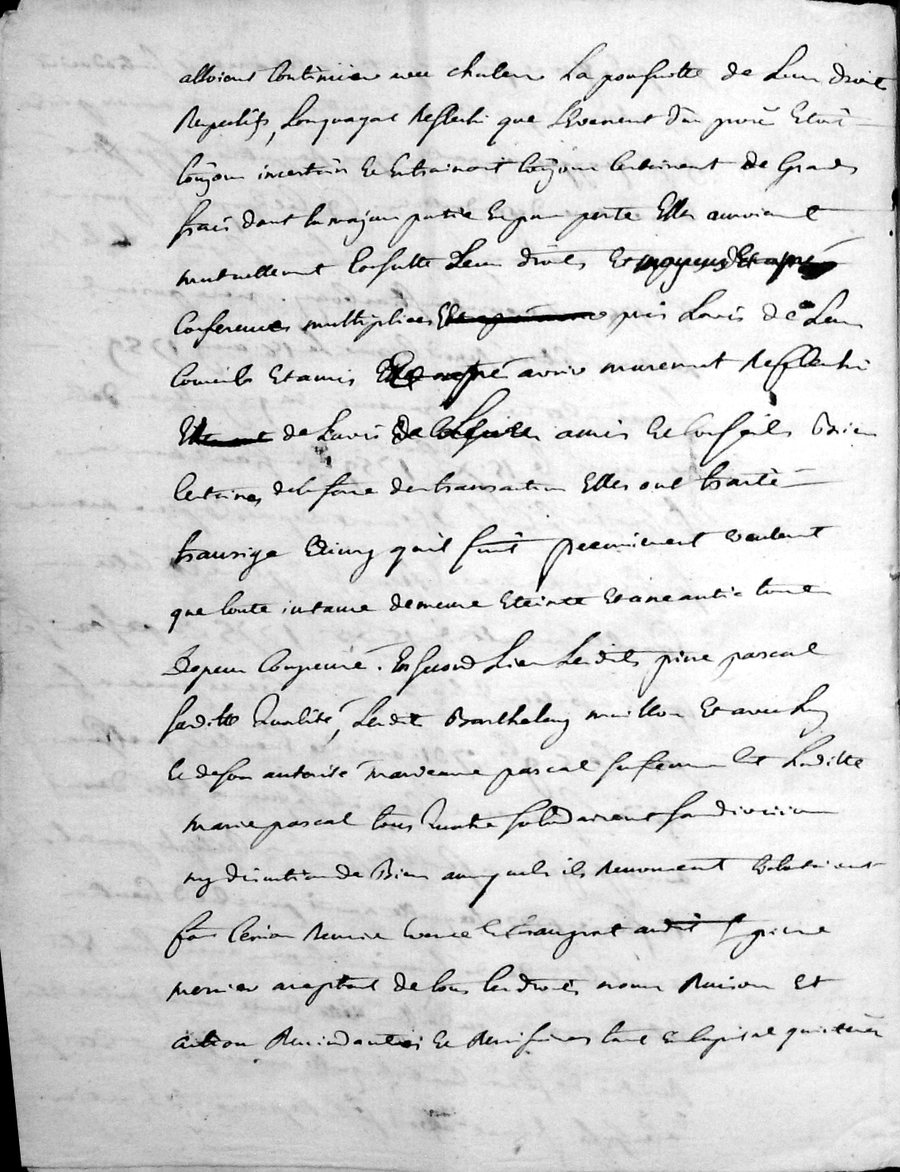 alloient Continuer avec chaleur La poursuitte de Leur droit
Respectifs, Reflechi que L'evenement d'un procé Etoit
toujour incertain Et Entrainoit toujour Certainement de Grand
frais dont la majeur partie En pure perte Elles auroient
mutuellement Consulté Leur droits Et moyens Et apré
Conferences multiplices pris L'avis de Leur
Conseils Et amis Et apré avoir murement Refflechi
de L'avis de Leur amis Et Conseils Bien
Certaines de la force de transaction Elles ont traité
transigé Et ainsy qu'il suit premierement veulent
que toute instance demeure Eteinte Et aneantie tous
Depens Compensé. En second Lieu Lesdits pierre pascal
saditte qualité, Ledit Barthelemy maillon Et avec luy
Et de son autorité marianne pascal sa femme Et Laditte
marie pascal tous quatre solidairement sans division
ny discution de Biens auxquels ils renoncent
font Cession Remise audit Sr pierre
mercier aceptant de tous Les droits noms Raison Et
action Rescindantes Et Rescisoires tant En Capital qu'interets